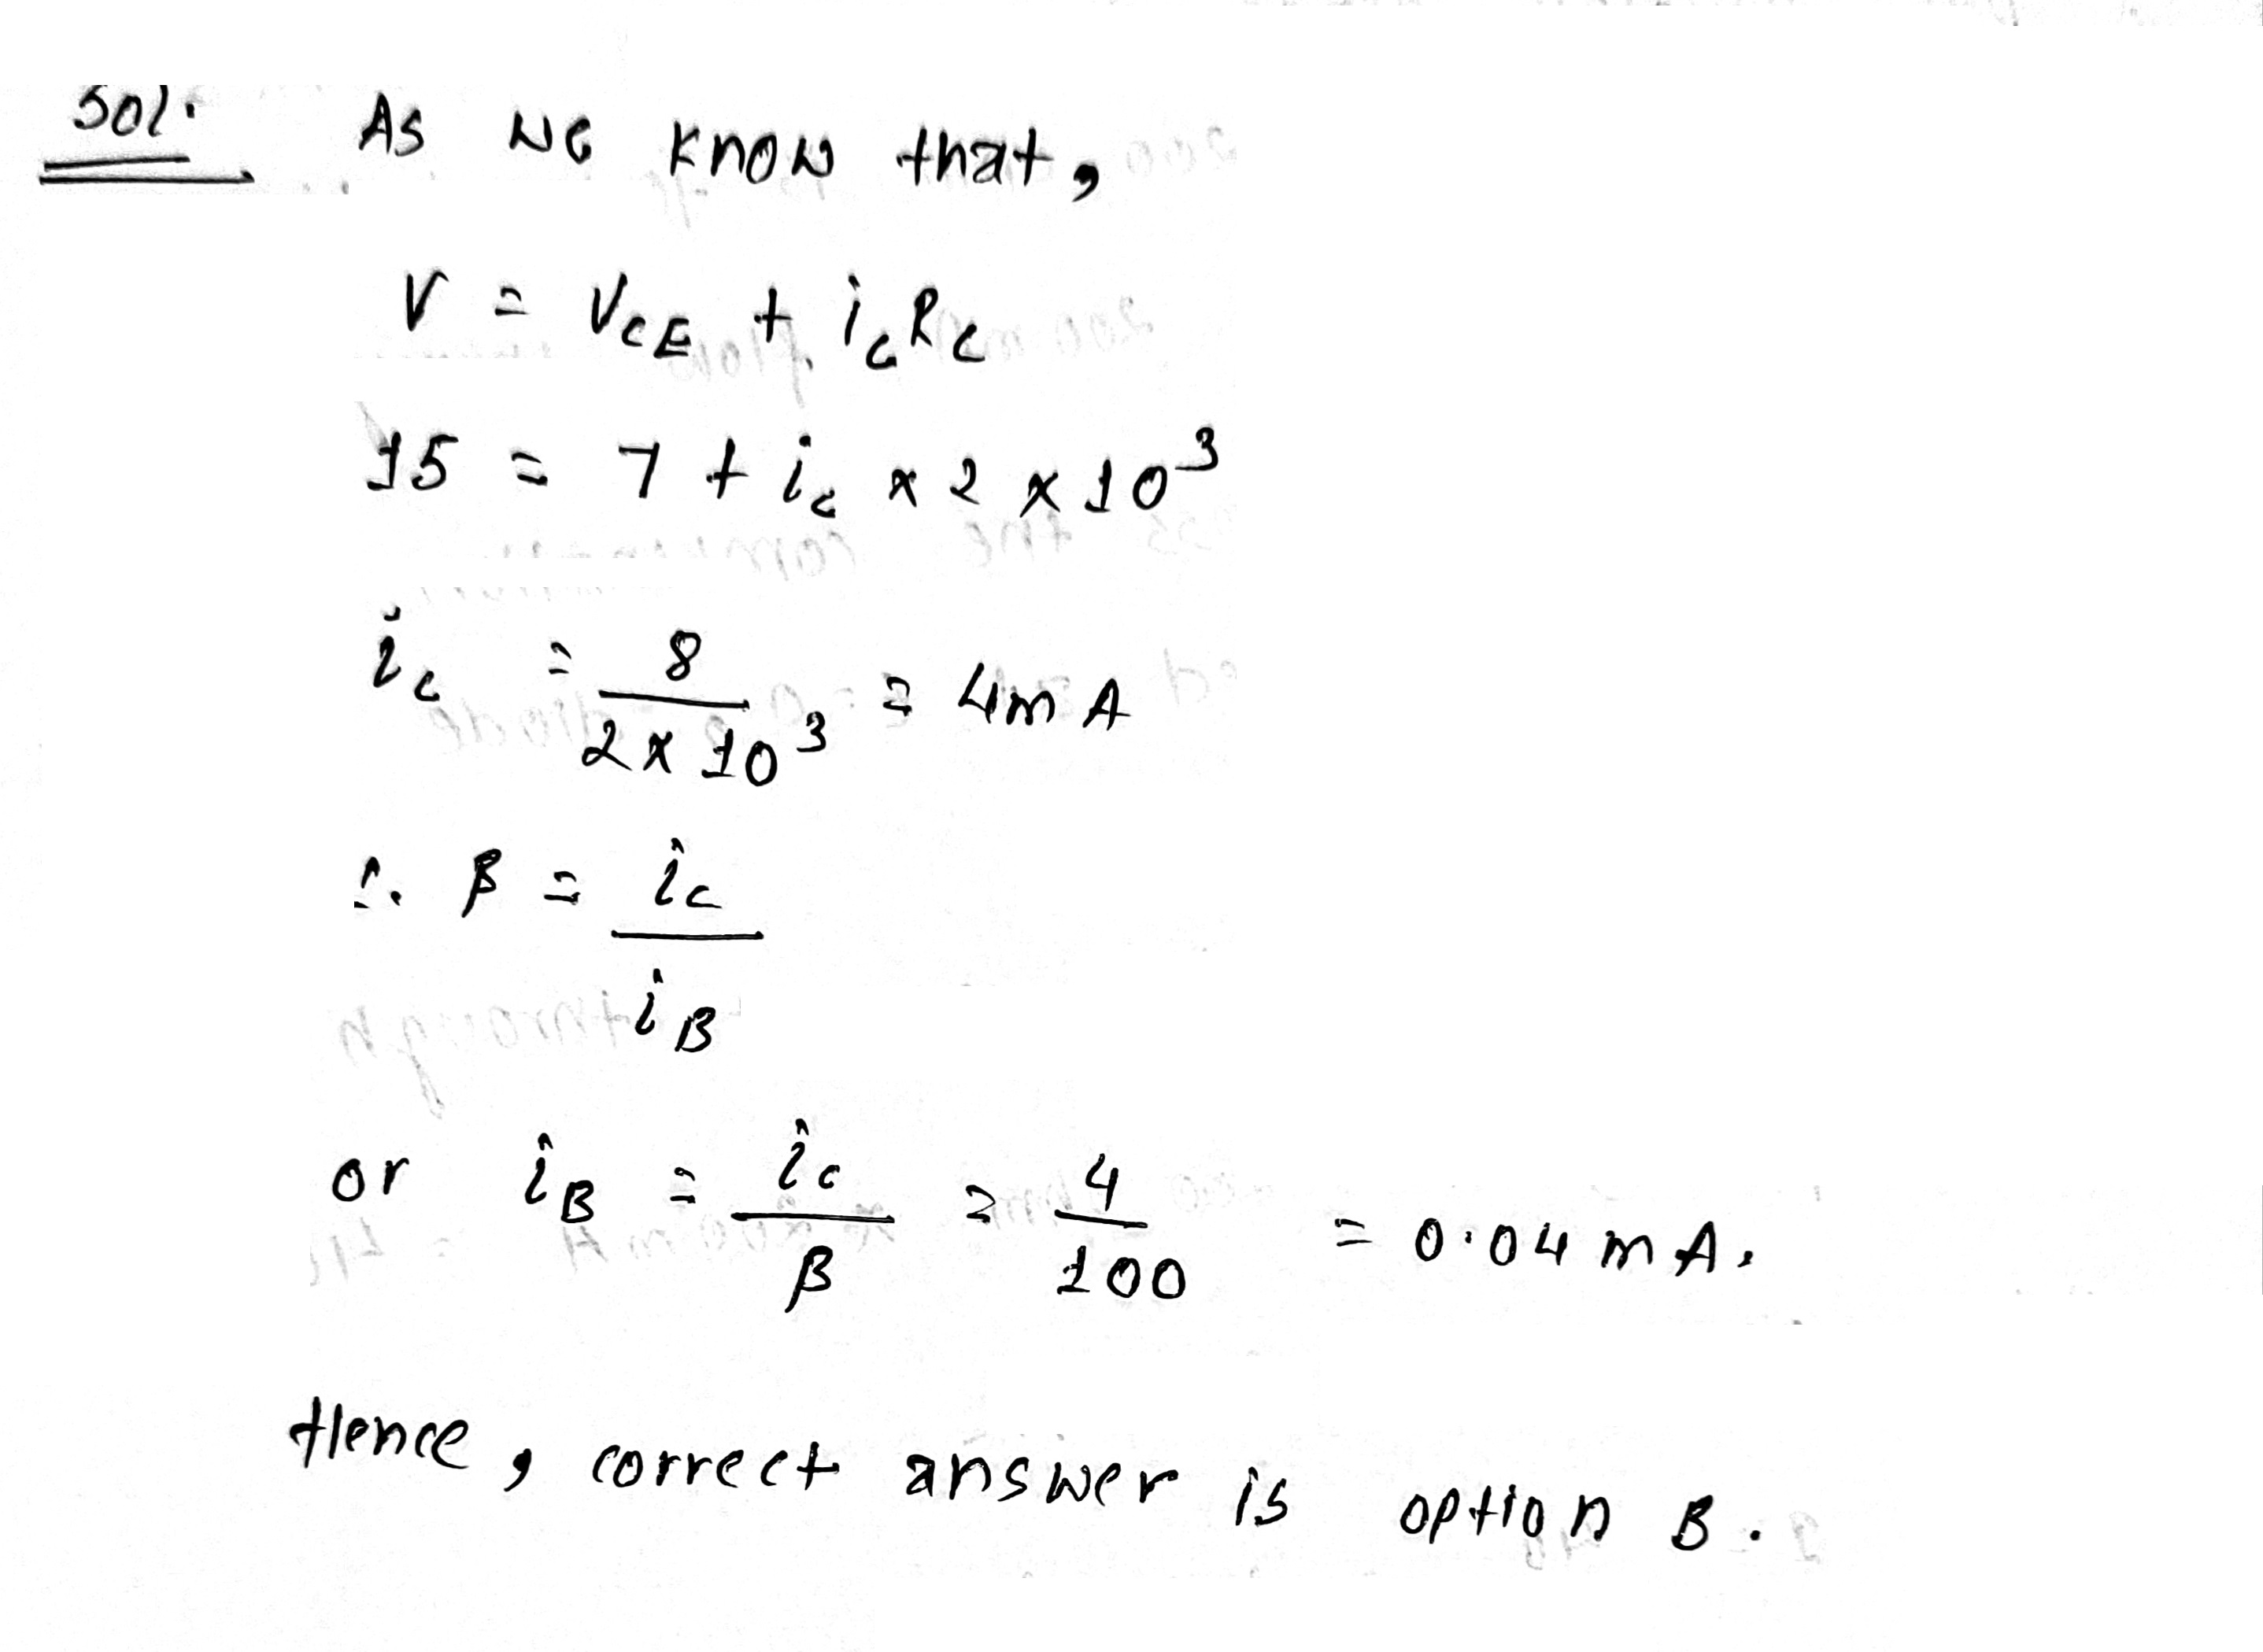 Sol.
As we know that,
V = V_CE + i_c R_c
15 = 7 + i_c × 2 × 10^3
i_c = 8 / 2 × 10^3 = 4mA
∴ β = i_c / i_B
or i_B = i_c / β = 4 / 100 = 0.04 mA.
Hence, correct answer is option B.